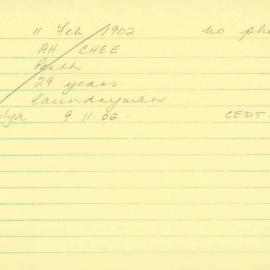 11 Feb 1902 no pho
AH CHEE
Perth
29 years
Laundryman
lya 9 11 02. CEDT